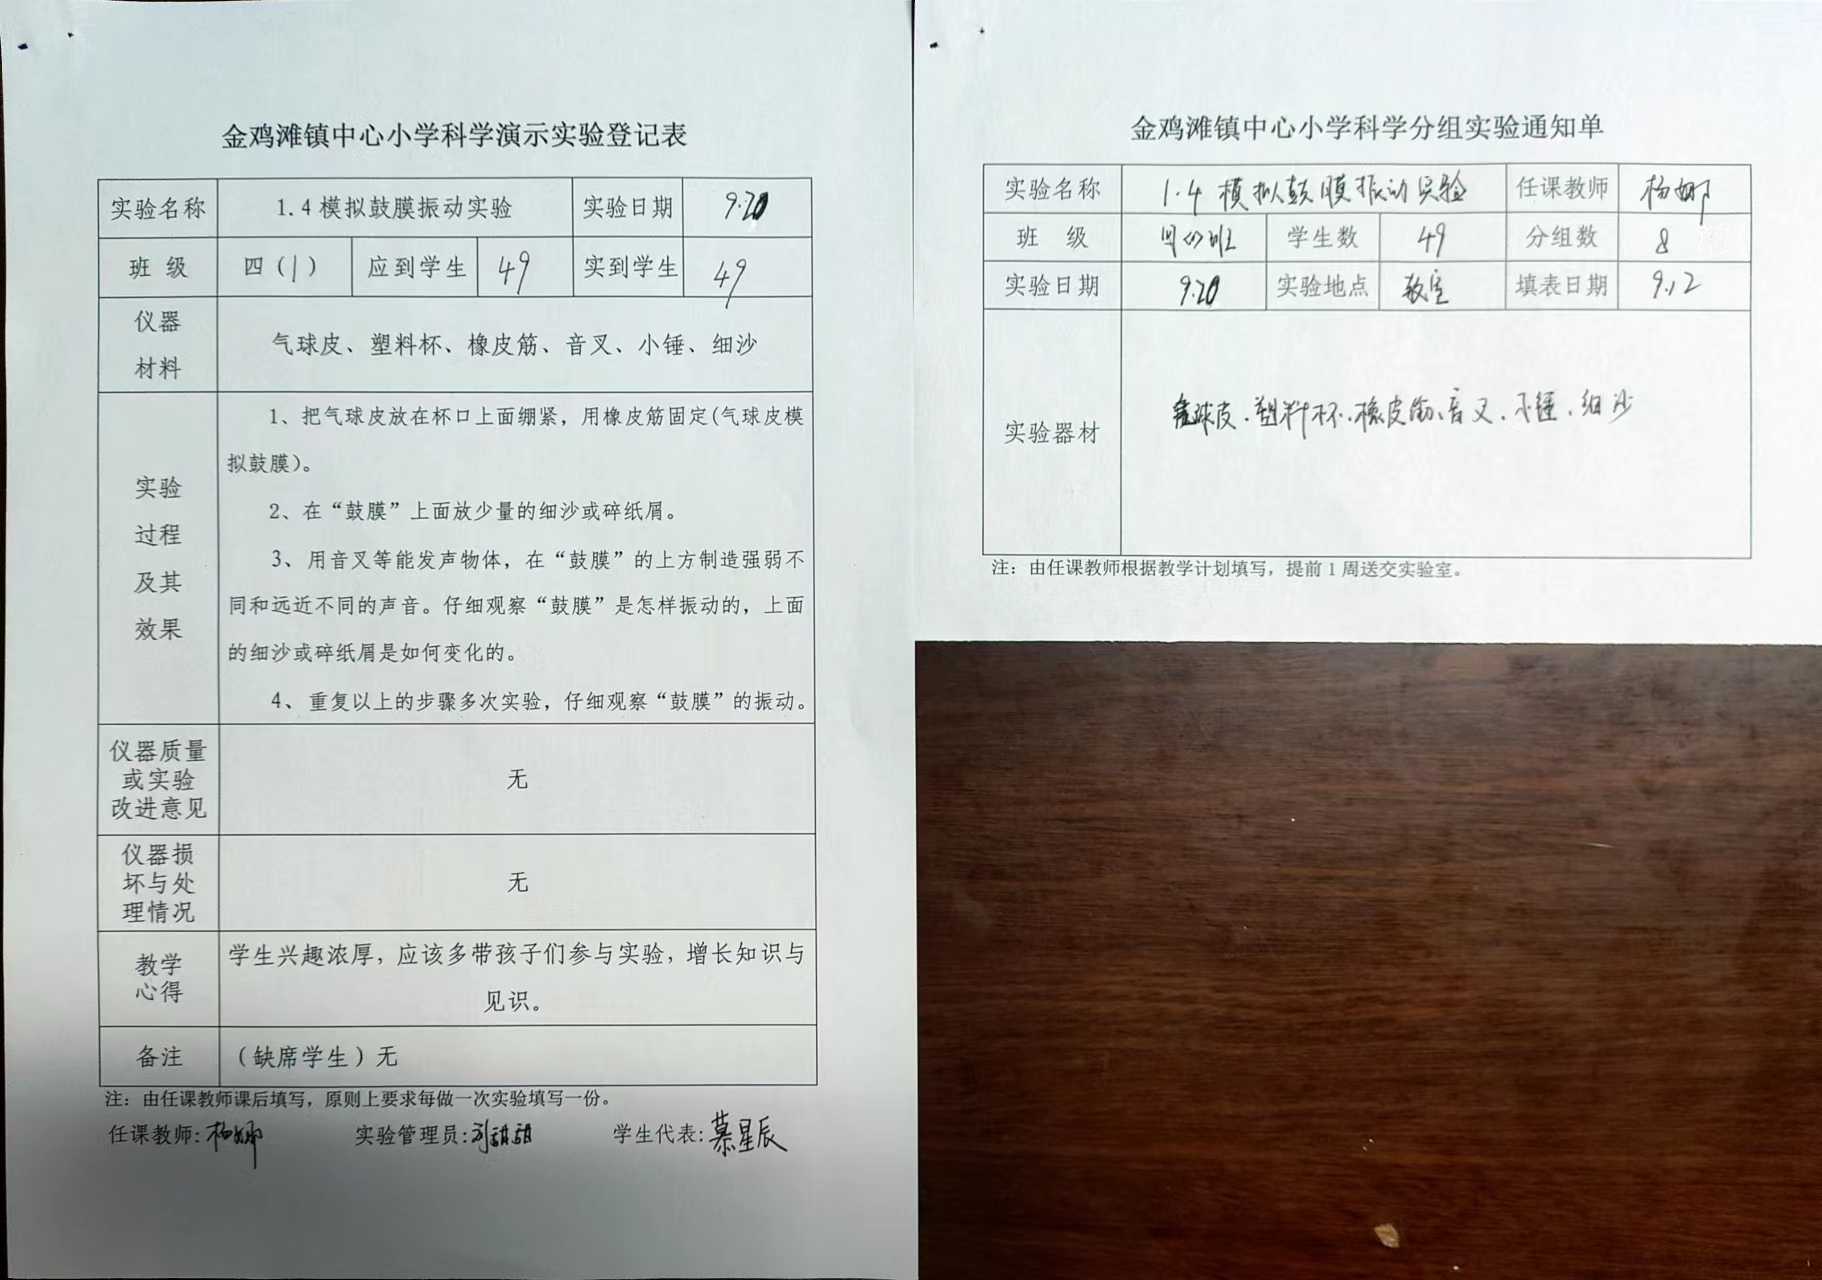 金鸡滩镇中心小学科学演示实验登记表
实验名称 1.4模拟鼓膜振动实验 实验日期 9.20
班 级 四(1) 应到学生 49 实到学生 49
仪器
材料
气球皮、塑料杯、橡皮筋、音叉、小锤、细沙
实验
过程
及其
效果
1、把气球皮放在杯口上面绷紧，用橡皮筋固定(气球皮模
拟鼓膜)。
2、在“鼓膜”上面放少量的细沙或碎纸屑。
3、用音叉等能发声物体，在“鼓膜”的上方制造强弱不
同和远近不同的声音。仔细观察“鼓膜”是怎样振动的，上面
的细沙或碎纸屑是如何变化的。
4、重复以上的步骤多次实验，仔细观察“鼓膜”的振动。
仪器质量
或实验
改进意见
无
仪器损
坏与处
理情况
无
教学
心得
学生兴趣浓厚，应该多带孩子们参与实验，增长知识与
见识。
备注 （缺席学生）无
注：由任课教师课后填写，原则上要求每做一次实验填写一份。
任课教师:杨娜 实验管理员:刘甜甜 学生代表:慕星辰
金鸡滩镇中心小学科学分组实验通知单
实验名称 1.4 模拟鼓膜振动实验 任课教师 杨娜
班 级 四(1)班 学生数 49 分组数 8
实验日期 9.20 实验地点 教室 填表日期 9.12
实验器材 气球皮、塑料杯、橡皮筋、音叉、小锤、细沙
注：由任课教师根据教学计划填写，提前1周送交实验室。